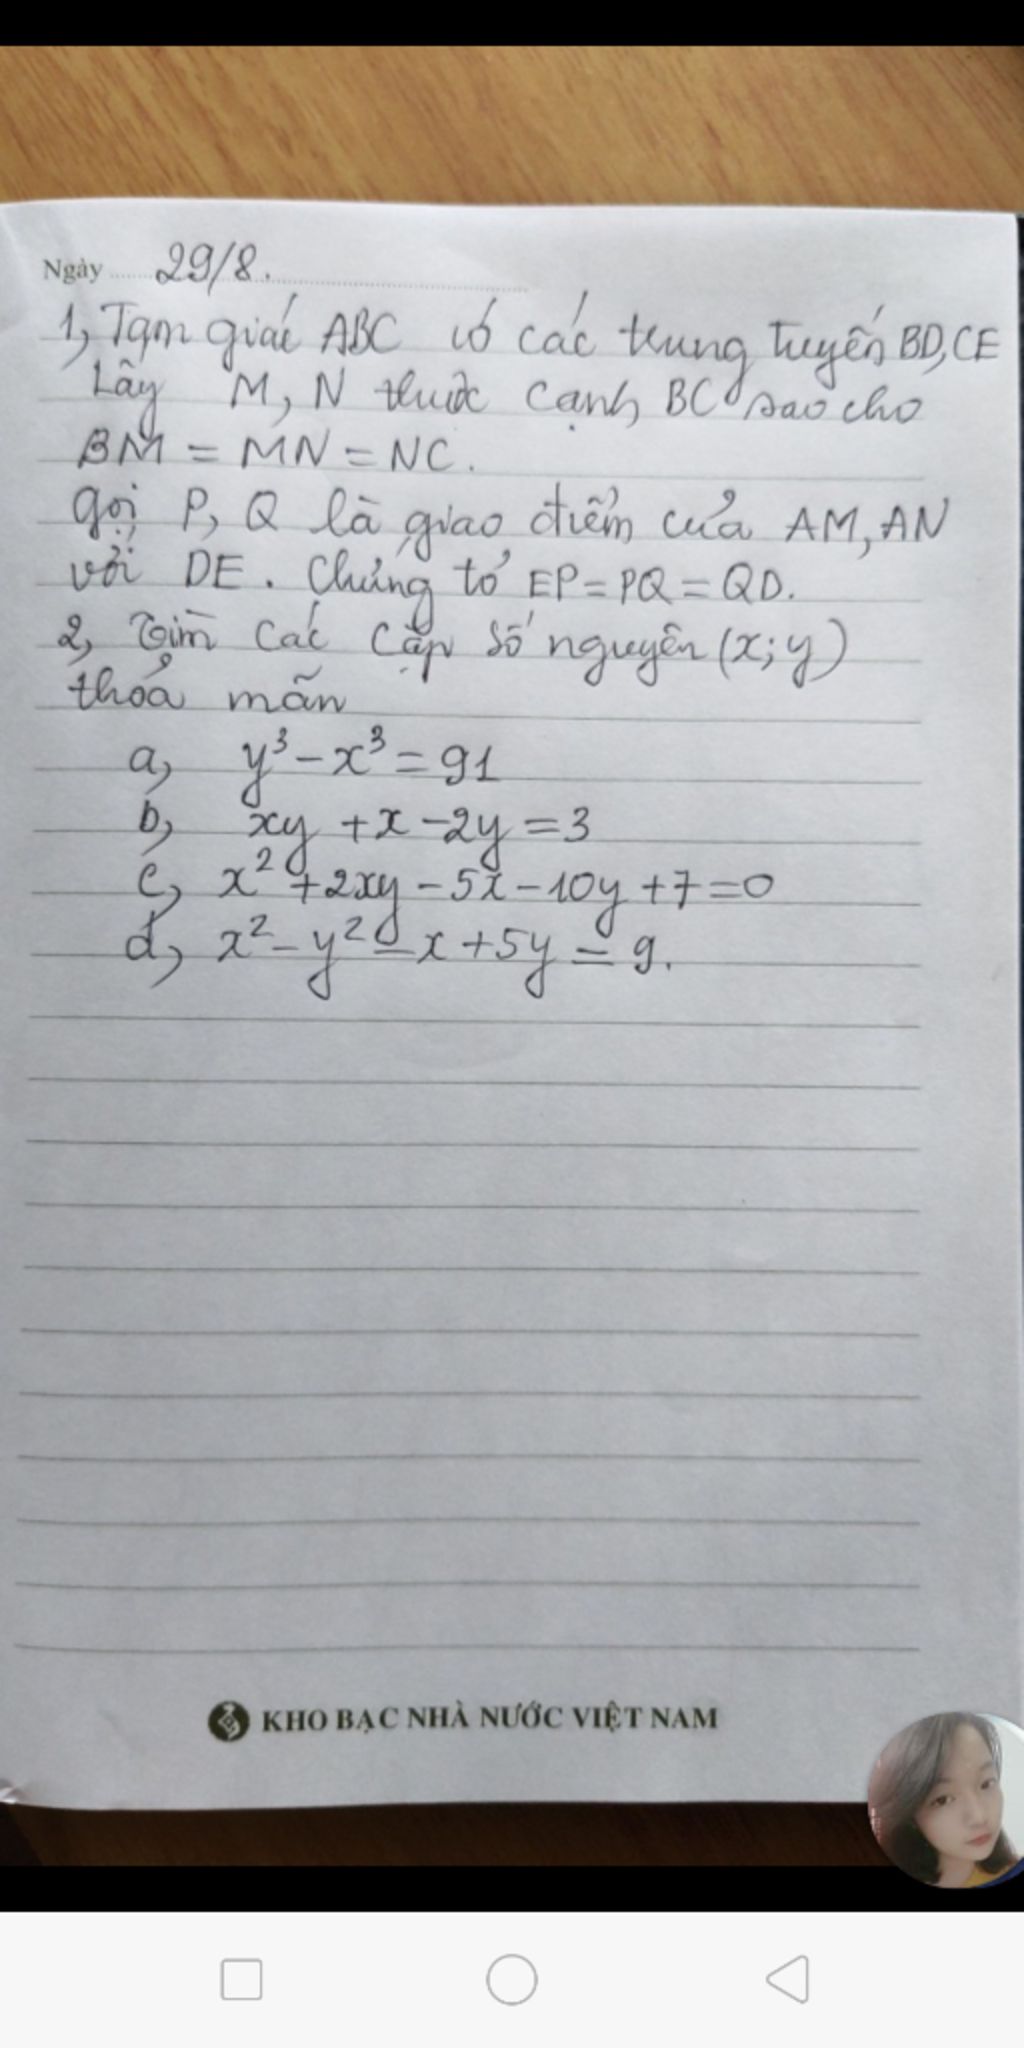 Ngày ...... 29/8.
1, Tam giác ABC có các trung tuyến BD, CE
Lấy M, N thuộc cạnh BC sao cho
BM = MN = NC.
Gọi P, Q là giao điểm của AM, AN
với DE. Chứng tỏ EP = PQ = QD.
2, Tìm các cặp số nguyên (x; y)
thỏa mãn
a, y³ - x³ = 91
b, xy + x - 2y = 3
c, x² + 2xy - 5x - 10y + 7 = 0
d, x² - y² - x + 5y = 9.
KHO BẠC NHÀ NƯỚC VIỆT NAM